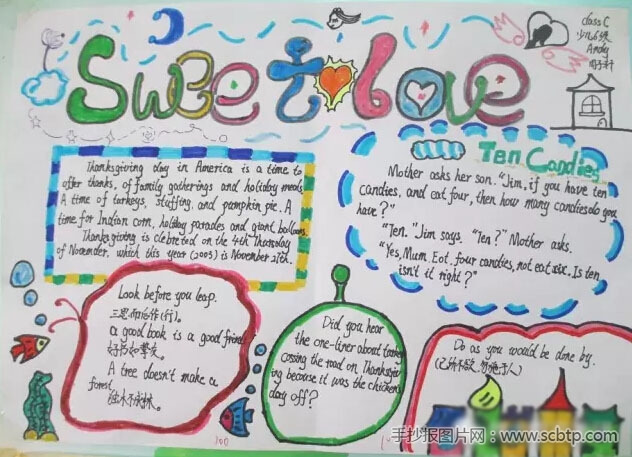 Sweet love
class C
Andy
Thanksgiving day in America is a time to
offer thanks, of family gatherings and holiday meals
A time of turkeys, stuffing, and pumpkin pie. A
time for Indian corn, holiday parades and giant balloons.
Thanksgiving is clebrated on the 4th Thursday
of November, which this year (2003) is November 27th.
Ten Candies
Mother asks her son. "Jim, if you have ten
candies, and eat four, then how many candies do you
have?"
"Ten." Jim says. "Ten?" Mother asks.
"Yes, Mum. Eat four candies, not eat six. Is ten
isn't it right?"
Look before you leap.
三思而后作(行).
a good book is a good friend.
好书如挚友.
A tree doesn't make a
forest.
独木不成林.
Did you hear
the one-liner about turkey
cossing the road on Thanksgiv
ing because it was the chickens
day off?
Do as you would be done by.
(己所不欲, 勿施于人)
手抄报图片网:www.scbtp.com